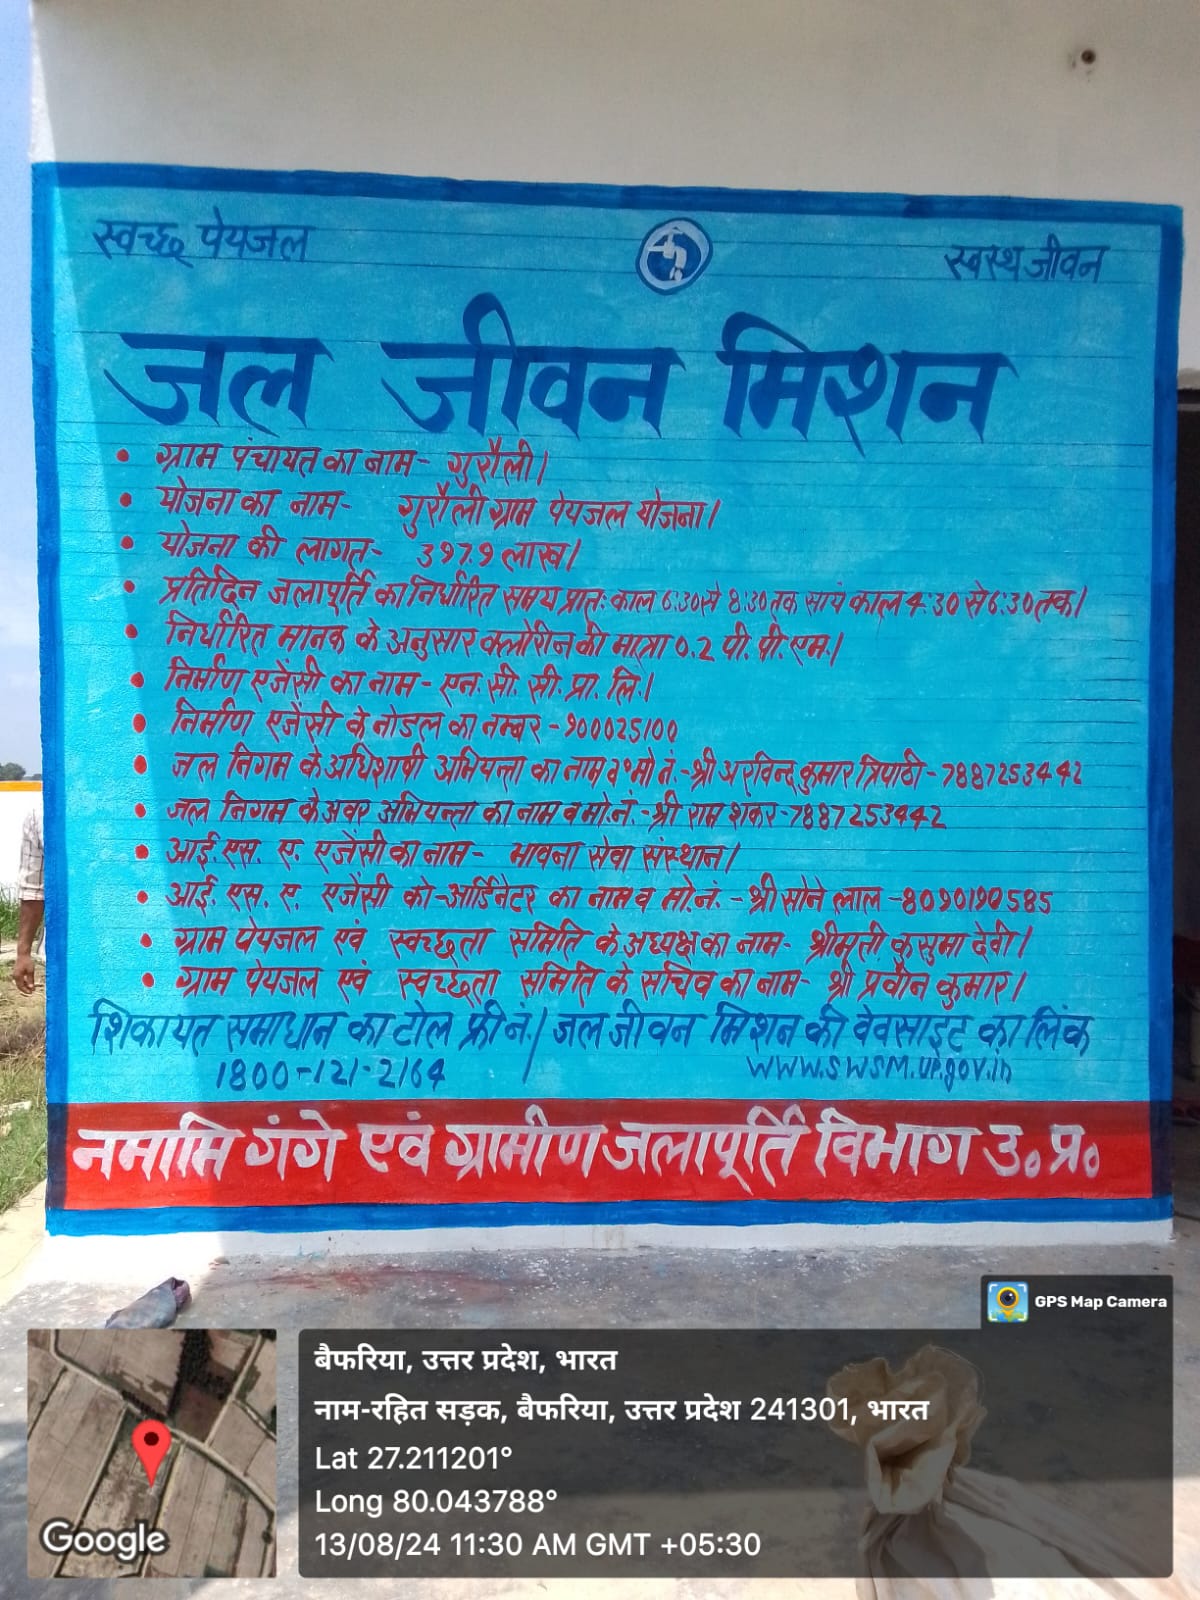 स्वच्छ पेयजल
स्वस्थ जीवन
जल जीवन मिशन
• ग्राम पंचायत का नाम- गुरौली।
• योजना का नाम- गुरौली ग्राम पेयजल योजना।
• योजना की लागत- 397.9 लाख।
• प्रतिदिन जलापूर्ति का निर्धारित समय प्रातः काल 6:30 से 8:30 तक सायं काल 4:30 से 6:30 तक।
• निर्धारित मानक के अनुसार क्लोरिन की मात्रा 0.2 पी. पी. एम.।
• निर्माण एजेंसी का नाम- एन. सी. सी. प्रा. लि.।
• निर्माण एजेंसी के नोडल का नम्बर -900025100
• जल निगम के अधिशाषी अभियन्ता का नाम व मो नं.-श्री अरविन्द कुमार त्रिपाठी-7887253442
• जल निगम के अवर अभियन्ता का नाम व मो.नं.-श्री राम शंकर-7887253442
• आई. एस. ए. एजेंसी का नाम- भावना सेवा संस्थान।
• आई. एस. ए. एजेंसी को-आर्डिनेटर का नाम व मो.नं. - श्री सोने लाल -8090190585
• ग्राम पेयजल एवं स्वच्छता समिति के अध्यक्ष का नाम- श्रीमती कुसुमा देवी।
• ग्राम पेयजल एवं स्वच्छता समिति के सचिव का नाम- श्री प्रवीन कुमार।
शिकायत समाधान का टोल फ्री नं.। जल जीवन मिशन की वेवसाइट का लिंक
1800-121-2164 www.swsm.up.gov.in
नमामि गंगे एवं ग्रामीण जलापूर्ति विभाग उ० प्र०
GPS Map Camera
बैफरिया, उत्तर प्रदेश, भारत
नाम-रहित सड़क, बैफरिया, उत्तर प्रदेश 241301, भारत
Lat 27.211201°
Long 80.043788°
13/08/24 11:30 AM GMT +05:30
Google